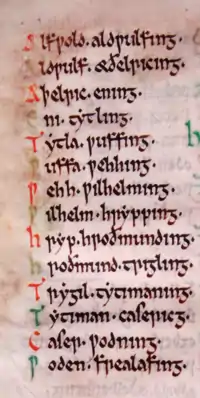 Alfƿold. aldƿulfing.
Aldƿulf. æðelricing.
Aþelric. ening.
Eni. tytling.
Tytla. ƿuffing.
Ƿuffa. ƿehhing.
Ƿehh. ƿilhelming.
Ƿilhelm. hrypping.
hryp. hroðmunding.
hroðmund. trigling.
Trygil. tytimaning.
Tytiman. casericg.
Caser. ƿodning.
Ƿoden. frealafing.